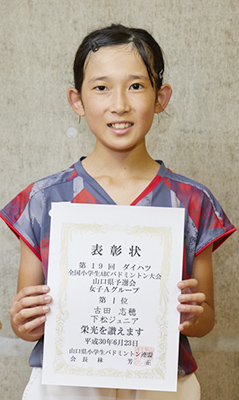 表彰状
第19回 ダイハツ
全国小学生ABCバドミントン大会
山口県予選会
女子Aグループ
第1位
古田 志穂
下松ジュニア
栄光を讃えます
平成30年6月23日
山口県小学生バドミントン連盟
会長 林 芳正